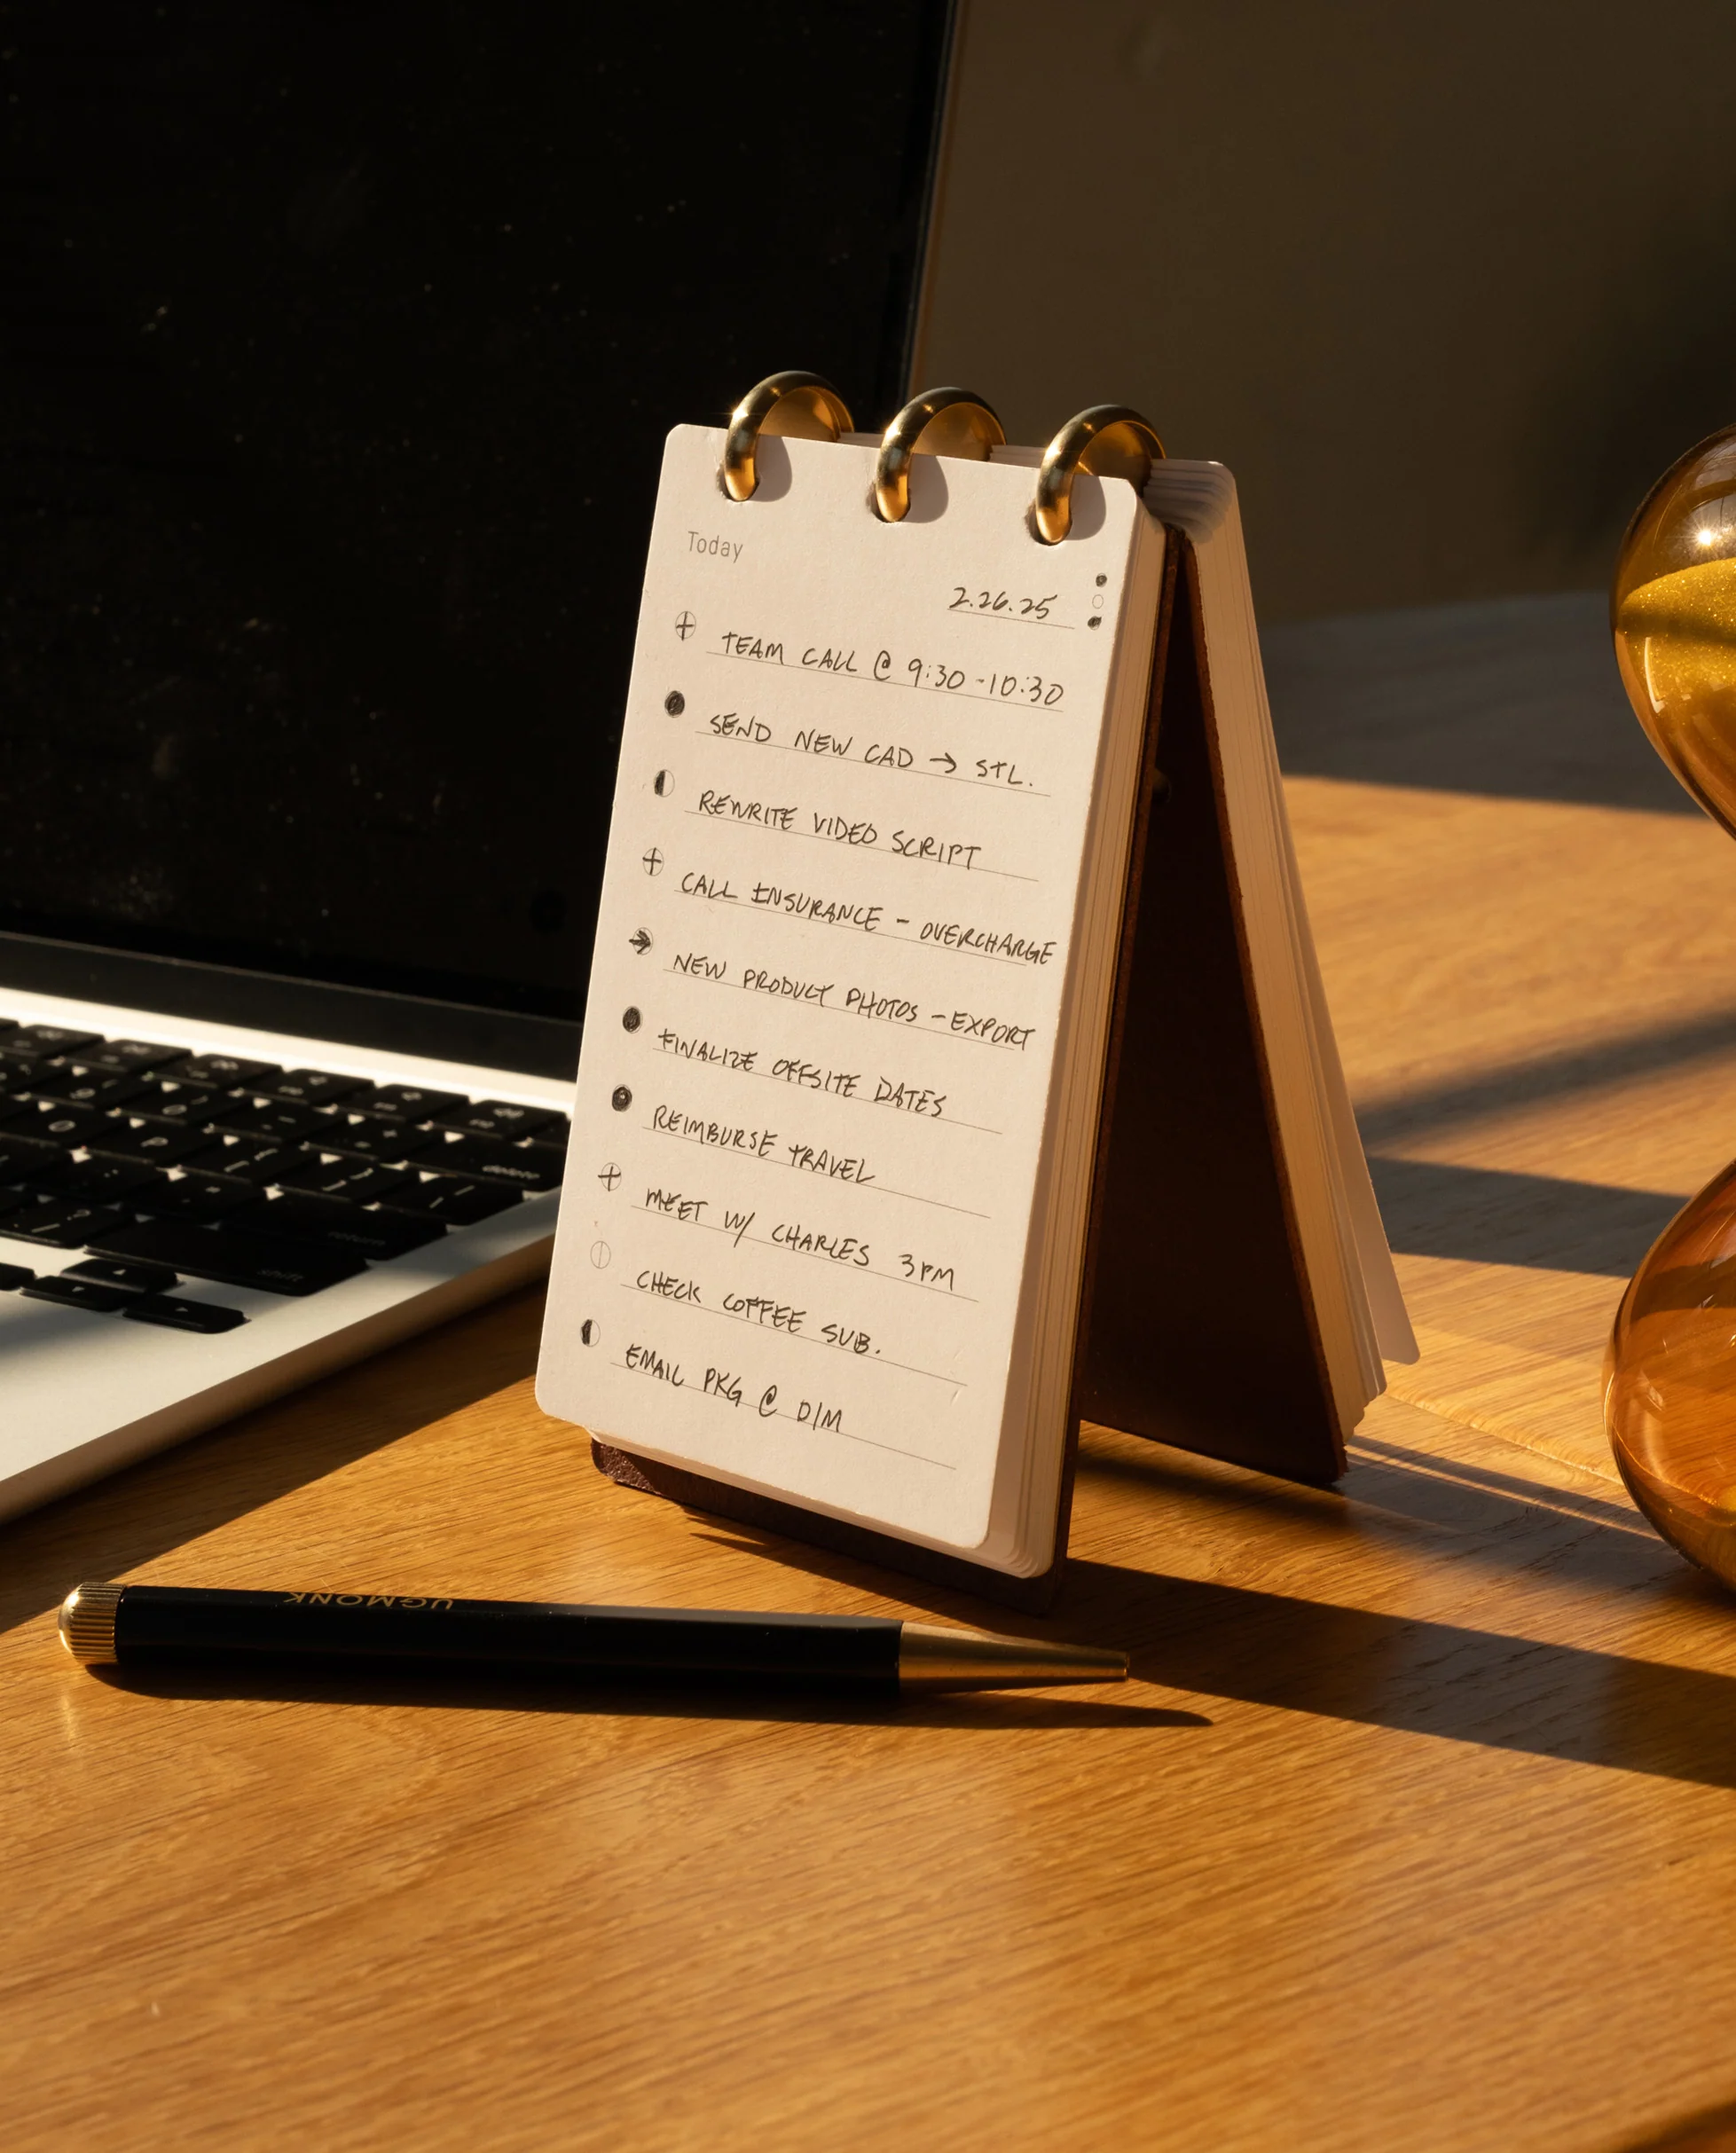 Today
2.26.25
TEAM CALL @ 9:30 - 10:30
SEND NEW CAD → STL.
REWRITE VIDEO SCRIPT
CALL INSURANCE - OVERCHARGE
NEW PRODUCT PHOTOS - EXPORT
FINALIZE OFFSITE DATES
REIMBURSE TRAVEL
MEET W/ CHARLES 3PM
CHECK COFFEE SUB.
EMAIL PKG @ DIM
delete
return
shift
UGMONK